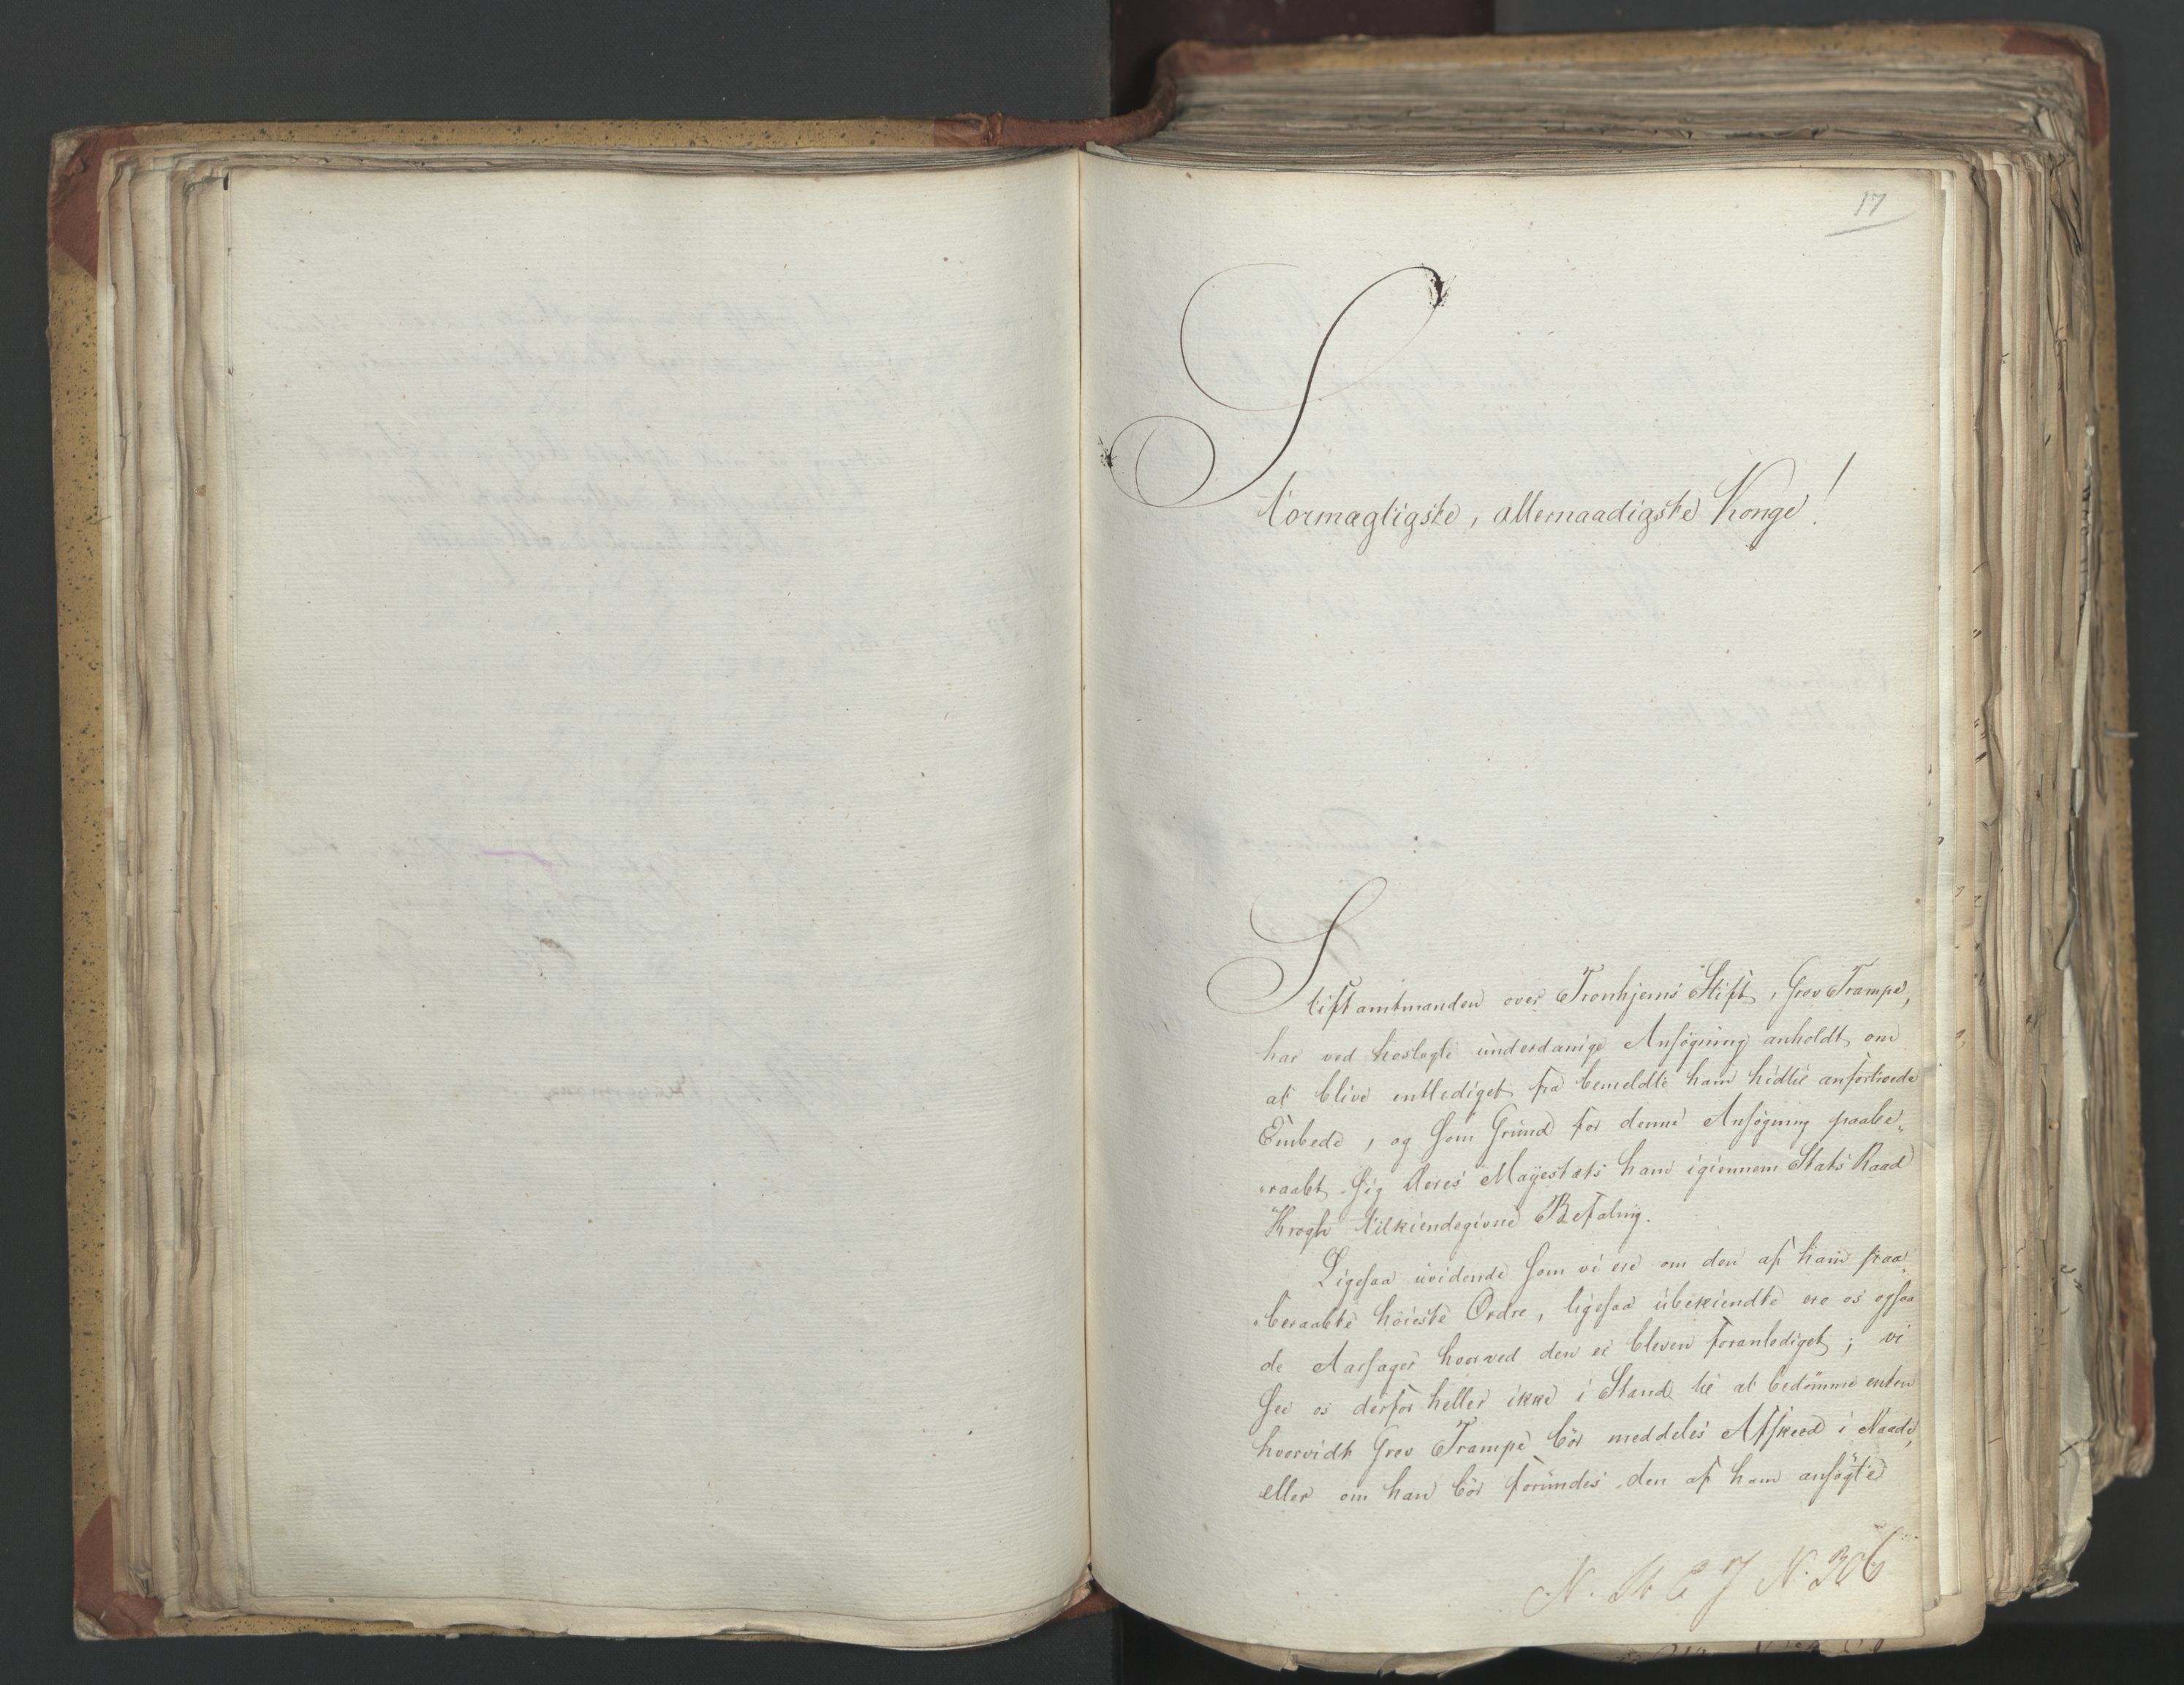 17
Stormagtigste, allernaadigste Konge!
Stiftamtmanden over Tronhjems Stift, Grev Trampe,
har ved hoslagte underdanige Ansögning anholdt om
at blive entlediget fra bemeldte ham hidtil anfortroede
Embede, og som Grund for denne Ansögning paabe„
„raabt sig Deres Mayestæts ham igiennem Stats Raad
Krogh tilkiendegivne Befaling.
Ligesaa uvidende som vi ere om den af ham paa„
„beraabte höieste Ordre, ligesaa ubekiendte ere os ogsaa
de Aarsager hvorved den er bleven foranlediget; vi
see os derfor heller ikke i Stand til at bedömme enten
hvorvidt Grev Trampe bör meddeles Afskeed i Naade,
eller om han bör forundes den af ham ansögte
N. St C J N. 306